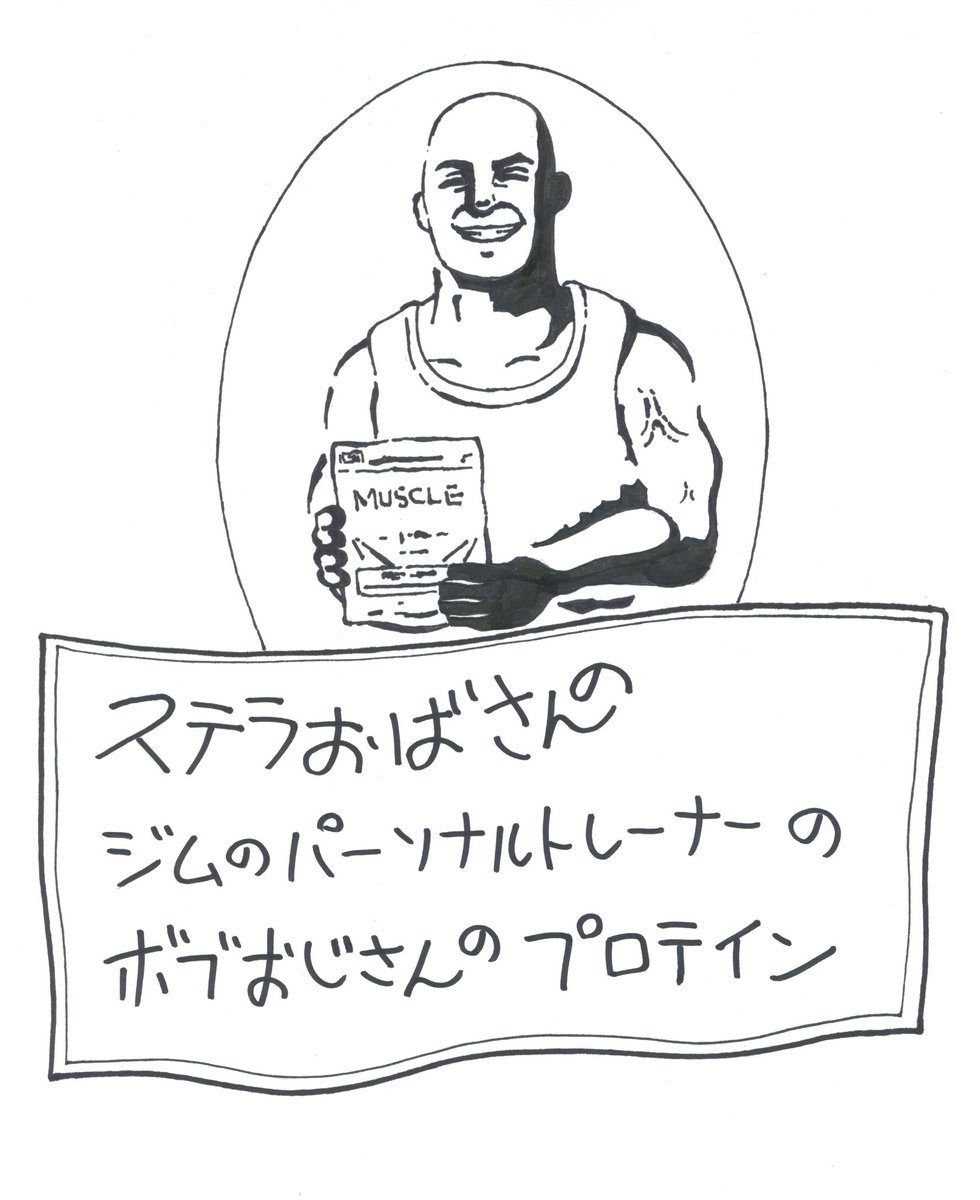 MUSCLE
ステラおばさんの
ジムのパーソナルトレーナーの
ボブおじさんのプロテイン